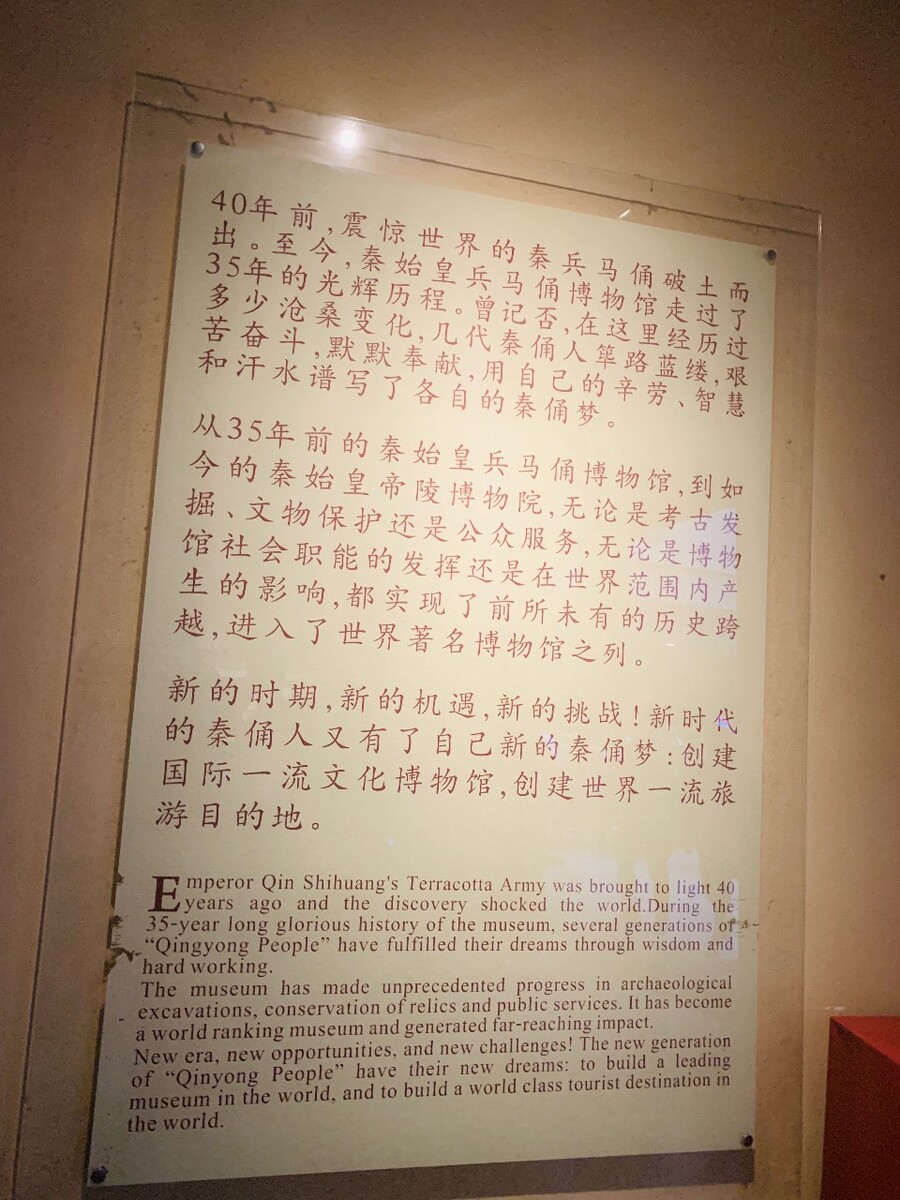 40年前,震惊世界的秦兵马俑破土而
出。至今,秦始皇兵马俑博物馆走过了
35年的光辉历程。曾记否,在这里经历过
多少沧桑变化,几代秦俑人筚路蓝缕,艰
苦奋斗,默默奉献,用自己的辛劳、智慧
和汗水谱写了各自的秦俑梦。
从35年前的秦始皇兵马俑博物馆,到如
今的秦始皇帝陵博物院,无论是考古发
掘、文物保护还是公众服务,无论是博物
馆社会职能的发挥还是在世界范围内产
生的影响,都实现了前所未有的历史跨
越,进入了世界著名博物馆之列。
新的时期,新的机遇,新的挑战!新时代
的秦俑人又有了自己新的秦俑梦:创建
国际一流文化博物馆,创建世界一流旅
游目的地。
Emperor Qin Shihuang's Terracotta Army was brought to light 40
years ago and the discovery shocked the world.During the
35-year long glorious history of the museum, several generations of
“Qingyong People” have fulfilled their dreams through wisdom and
hard working.
The museum has made unprecedented progress in archaeological
excavations, conservation of relics and public services. It has become
a world ranking museum and generated far-reaching impact.
New era, new opportunities, and new challenges! The new generation
of “Qinyong People” have their new dreams: to build a leading
museum in the world, and to build a world class tourist destination in
the world.